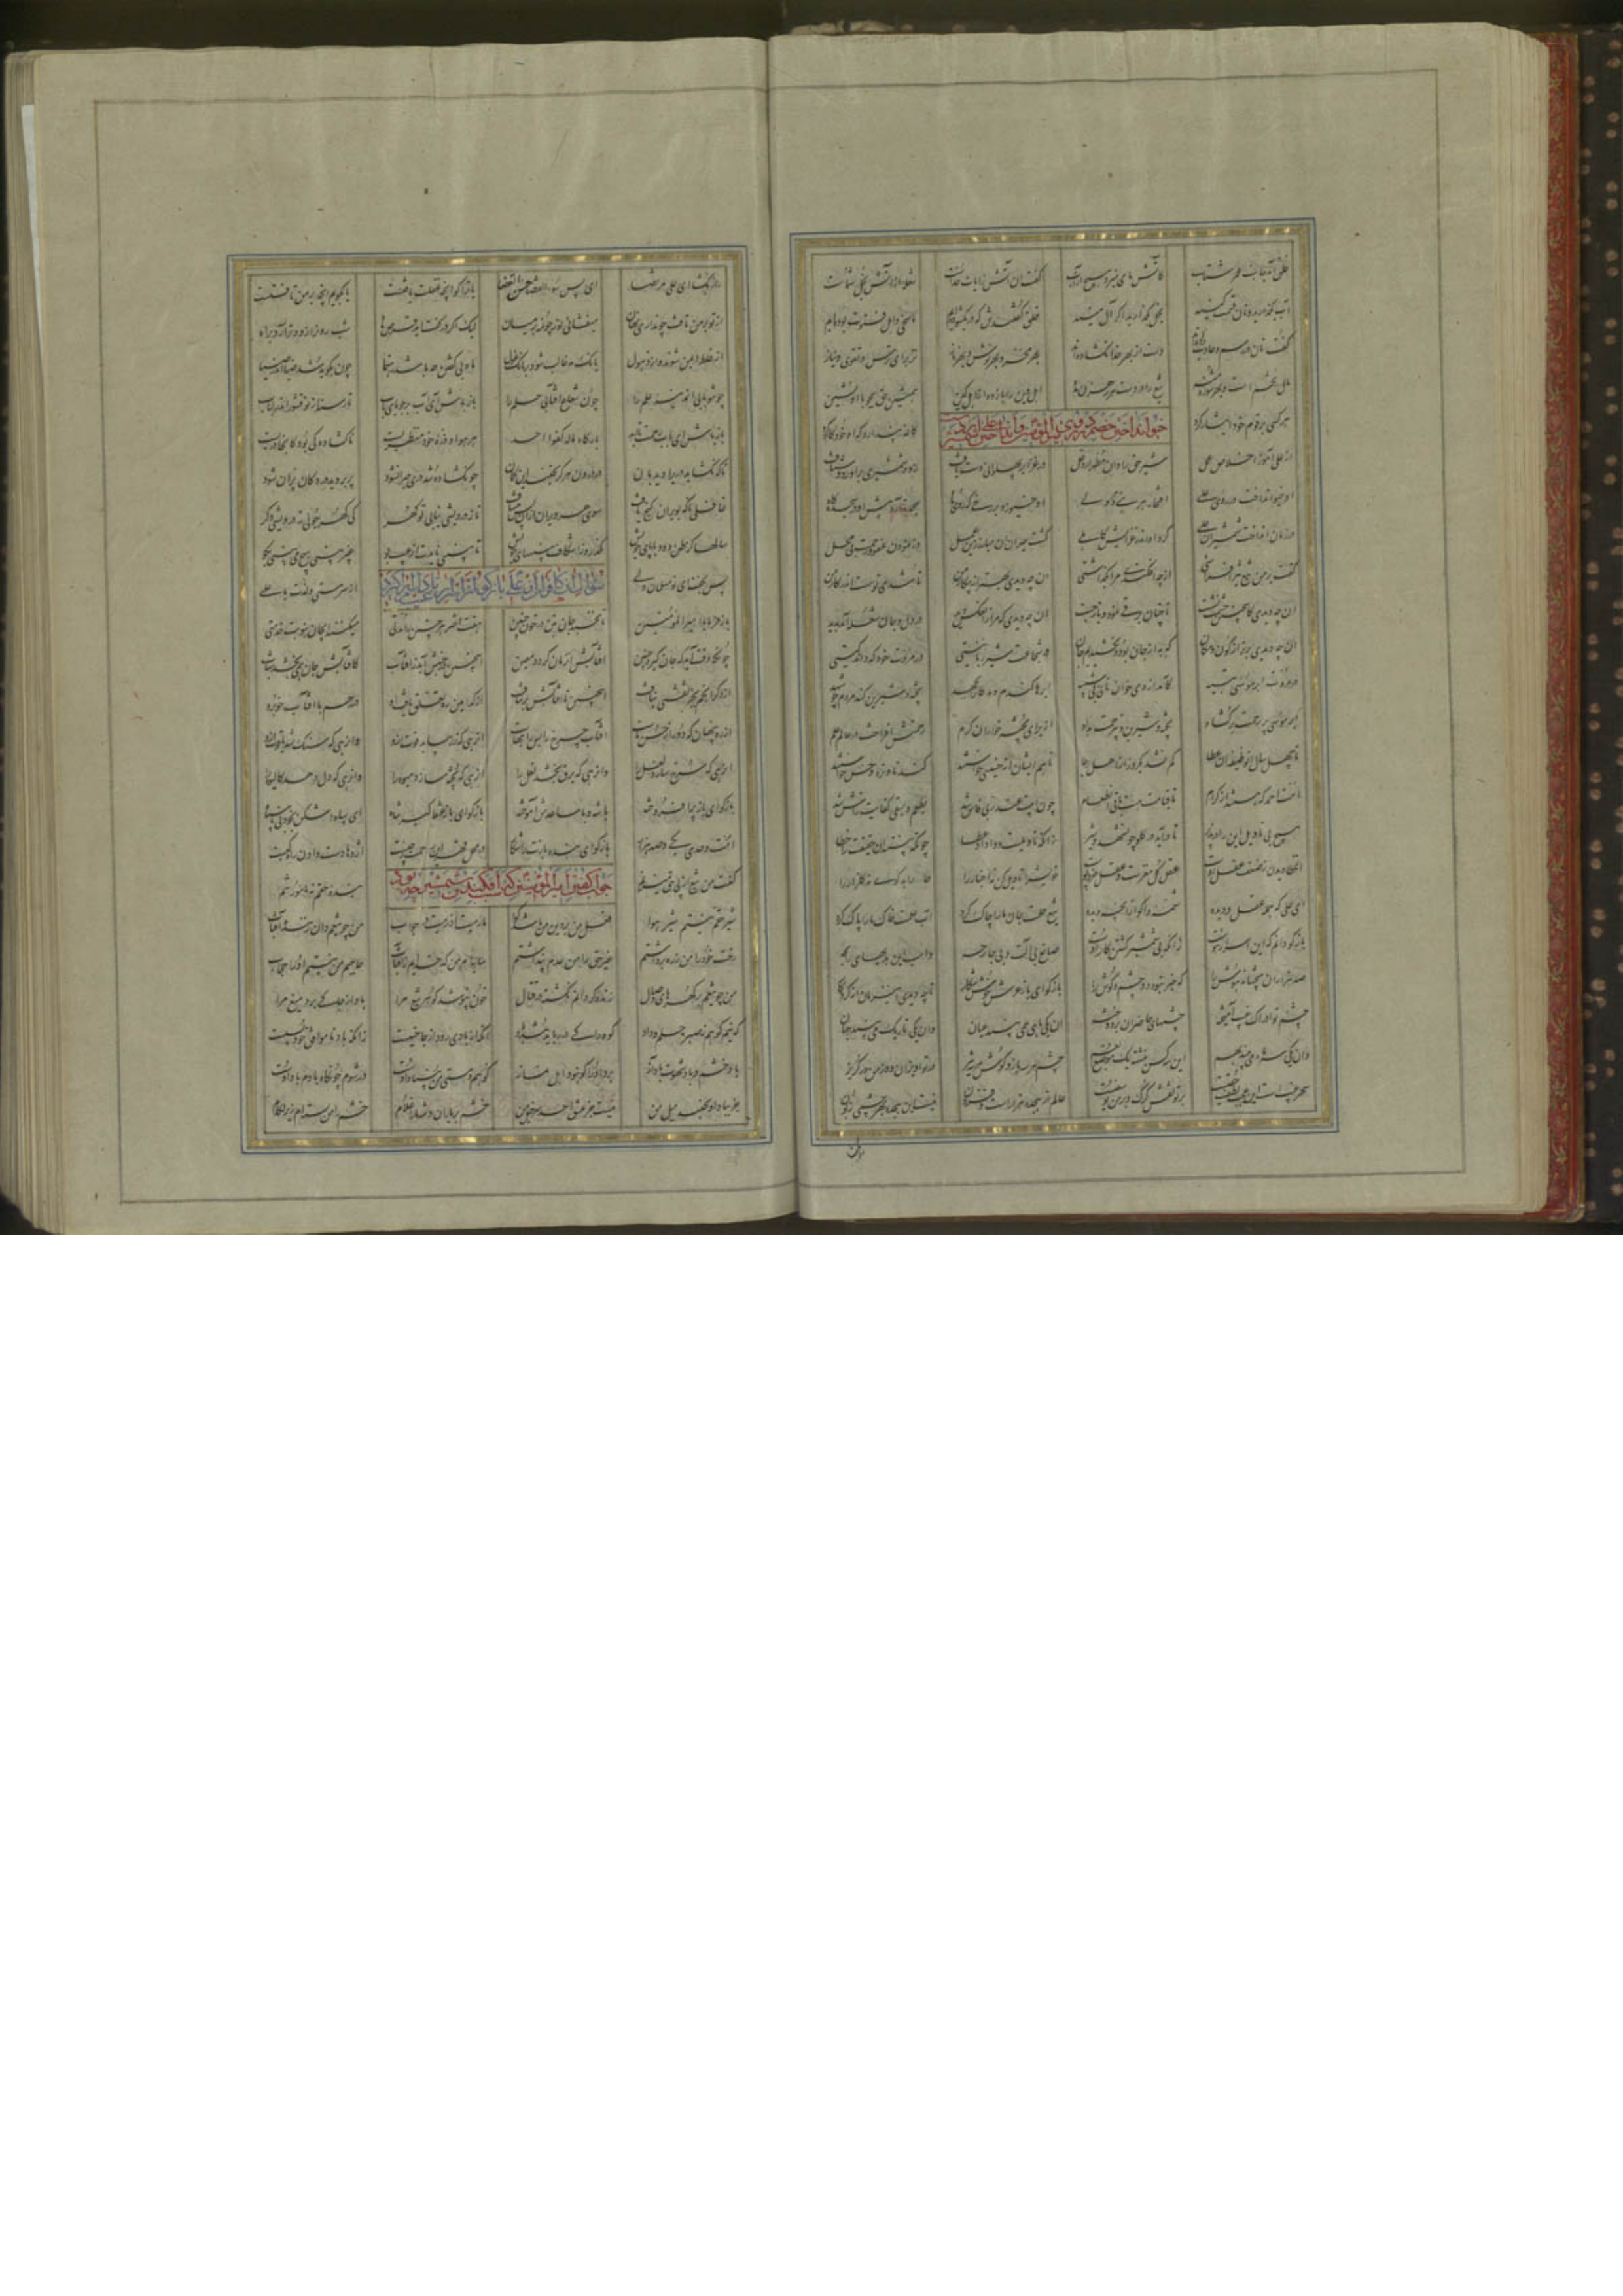 خلق آمد جانب عمر شتاب کاتش ما می نمیرد هیچ از آب گفت آن آتش ز آیات خداست شعله از آتش بخل شماست
آب بگذارید و نان قسمت کنید بخل بگذارید اگر آل منید خلق گفتندش که در بگشوده ایم ما سخی و اهل فتوت بوده ایم
گفت نان در رسم و عادت داده اید دست از بهر خدا نگشاده اید بهر فخر و بهر بوش و بهر ناز نز برای ترس و تقوی و نیاز
مال تخم است و بهر شوره منه تیغ را در دست هر رهزن مده اهل دین را باز دان از اهل کین همنشین حق بجو با او نشین
هر کسی بر قوم خود ایثار کرد کاغه پندارد که او خود کار کرد
از علی آموز اخلاص عمل شیر حق را دان مطهر از دغل در غزا بر پهلوانی دست یافت زود شمشیری برآورد و شتافت
او خدو انداخت در روی علی افتخار هر نبی و هر ولی او خدو زد بر رخی که روی ماه سجده آرد پیش او در سجده گاه
در زمان انداخت شمشیر آن علی کرد او اندر غزایش کاهلی گشت حیران آن مبارز زین عمل وز نمودن عفو و رحمت بی محل
گفت بر من تیغ تیز افراشتی از چه افکندی مرا بگذاشتی آن چه دیدی بهتر از پیکار من تا شدی تو سست در اشکار من
آن چه دیدی که چنین خشمت نشست تا چنان برقی نمود و باز جست آن چه دیدی که مرا زان عکس دید در دل و جان شعله آمد پدید
آن چه دیدی برتر از کون و مکان که به از جان بود و بخشیدیم جان در شجاعت شیر ربانیستی در مروت خود که داند کیستی
در مروت ابر موسی بتیه کامد از وی خوان و نان بی شبیه ابرها گندم دهد کانرا بجهد پخته و شیرین کند مردم چو شهد
ابر موسی پر رحمت برگشاد پخته و شیرین بی زحمت بداد از برای پخته خواران کرم رحمتش افراخت در عالم علم
تا چهل سال آن وظیفه آن عطا کم نشد یکروز از آن اهل رجا تا هم ایشان از خسیسی خاستند گندنا و تره و خس خواستند
امت احمد که هستند از کرام تا قیامت هست باقی آن طعام چون ابیت عند ربی فاش شد یطعم و یسقی کنایت ز آش شد
هیچ بی تاویل این را در پذیر تا در آید در گلو چون شهد و شیر زانکه تاویلست وا داد عطا چونکه بیند آن حقیقت را خطا
آن خطا دیدن ز ضعف عقل اوست عقل کل مغزست و عقل جزو پوست خویش را تاویل کن نه اخبار را
ای علی که جمله عقل و دیده شمه واگو از آنچه دیده تیغ حلمت جان ما را چاک کرد آب علمت خاک ما را پاک کرد
بازگو دانم که این اسرار هوست زانکه بی شمشیر کشتن کار اوست صانع بی آلت و بی جارحه واهب این هدیهای رابحه
صد هزاران می چشاند هوش را که خبر نبود دو چشم و گوش را بازگو ای باز عرش خوش شکار تا چه دیدی این زمان از کردگار
چشم تو ادراک غیب آموخته چشمهای حاضران بر دوخته آن یکی ماهی همی بیند عیان وان یکی تاریک می بیند جهان
وان یکی سه ماه می بیند بهم این سه کس بنشسته یک موضع نعم چشم هر سه باز و گوش هر سه تیز در تو آویزان و از من در گریز
سحر عین است این عجب لطف خفیست بر تو نقش گرگ و بر من یوسفیست عالم ار هجده هزار است و فزون نیست این هجده بهر چشمی زبون
راز بگشا ای علی مرتضا ای پس سوء القضا حسن القضا یا تو واگو آنچه عقلت یافتست یا بگویم آنچه بر من تافتست
از تو بر من تافت چون داری نهان میفشانی نور چون مه بی زبان لیک اگر در گفت آید قرص ماه شب روان را زودتر آرد براه
از غلط ایمن شوند و از ذهول بانگ مه غالب شود بر بانگ غول ماه بی گفتن چو باشد رهنما چون بگوید شد ضیا اندر ضیا
چون تو بابی آن مدینه علم را چون شعاعی آفتاب حلم را باز باش ای باب بر جویای باب تا رسد از تو قشور اندر لباب
باز باش ای باب رحمت تا ابد بارگاه ما له کفوا احد هر هوا و ذره خود منظریست ناگشاده کی بود کانجا دریست
تا بنگشاید دری را دیدبان در درون هرگز نجنبد این گمان چون گشاده شد دری حیران شود پر بروید در گمان پران شود
غافلی ناگه بویران گنج یافت سوی هر ویران از آن پس می شتافت تا ز درویشی نیابی تو گهر کی گهر جویی ز درویشی دگر
سالها گر ظن دود با پای خویش نگذرد ز اشکاف بینیهای خویش تا ببینی نایدت از غیب بو غیر بینی هیچ می بینی بگو
پس بگفت آن نو مسلمان ولی از سر مستی و لذت با علی
باز فرما یا امیر المؤمنین تا بجنبد جان بتن در چون جنین هفت اختر هر جنین را مدتی میکنند ای جان بنوبت خدمتی
چونکه وقت آید که جان گیرد جنین آفتابش آن زمان گردد معین این جنین در جنبش آید ز آفتاب کافتابش جان همی بخشد شتاب
از دگر انجم بجز نقشی نیافت این جنین تا آفتابش بر نتافت از کدامین ره تعلق یافت او در رحم با آفتاب خوبرو
از ره پنهان که دور از حس ماست آفتاب چرخ را بس راههاست آن رهی که زر بیابد قوت ازو وان رهی که سنگ شد یاقوت ازو
آن رهی که سرخ سازد لعل را وان رهی که برق بخشد نعل را آن رهی که پخته سازد میوه را وان رهی که دل دهد کالیوه را
بازگو ای باز پر افروخته با شه و با ساعدش آموخته بازگو ای باز عنقا گیر شاه ای سپاه اشکن بخود نی با سپاه
امت وحدی یکی و صد هزار بازگو ای بنده بازت را شکار در محل قهر این رحمت ز چیست اژدها را دست دادن راه کیست
گفت من تیغ از پی حق میزنم جواب گفتن امیر المؤمنین بنده حقم نه مامور تنم
شیر حقم نیستم شیر هوا فعل من بر دین من باشد گوا ما رمیت اذ رمیت در حراب من چو تیغم وان زننده آفتاب
رخت خود را من ز ره برداشتم غیر حق را من عدم پنداشتم سایه ام من کدخدایم آفتاب حاجبم من نیستم او را حجاب
من چو تیغم پر گهرهای وصال زنده گردانم نه کشته در قتال خون نپوشد گوهر تیغ مرا باد از جا کی برد میغ مرا
که نیم کوهم ز صبر و حلم و داد کوه را کی در رباید تند باد آنکه از بادی رود از جا خسیست زانکه باد ناموافق خود بسیست
باد خشم و باد شهوت باد آز برد او را کو نبود اهل نماز کوهم و هستی من بنیاد اوست ور شوم چون کاه بادم باد اوست
جز بباد او نجنبد میل من نیست جز عشق احد سرخیل من خشم بر شاهان شه و ما را غلام خشم را من بسته ام زیر لگام